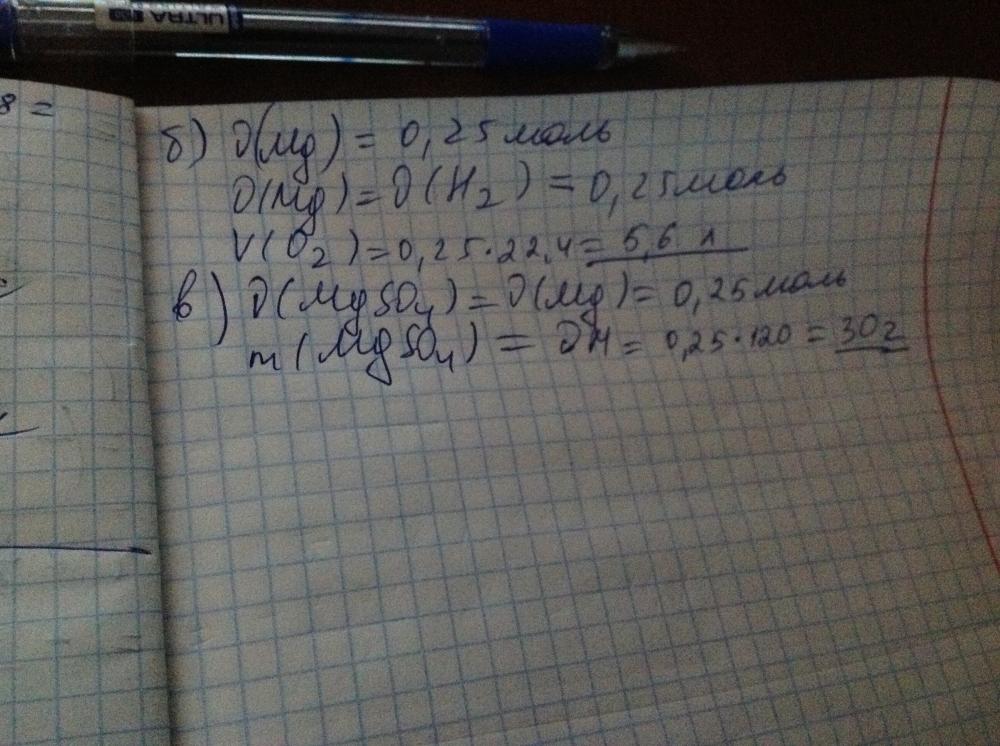 ULTRA
8 =
б) ν(Mg) = 0,25 моль
ν(Mg) = ν(H₂) = 0,25 моль
V(O₂) = 0,25·22,4 = 5,6 л
в) ν(MgSO₄) = ν(Mg) = 0,25 моль
m(MgSO₄) = νM = 0,25·120 = 30 г